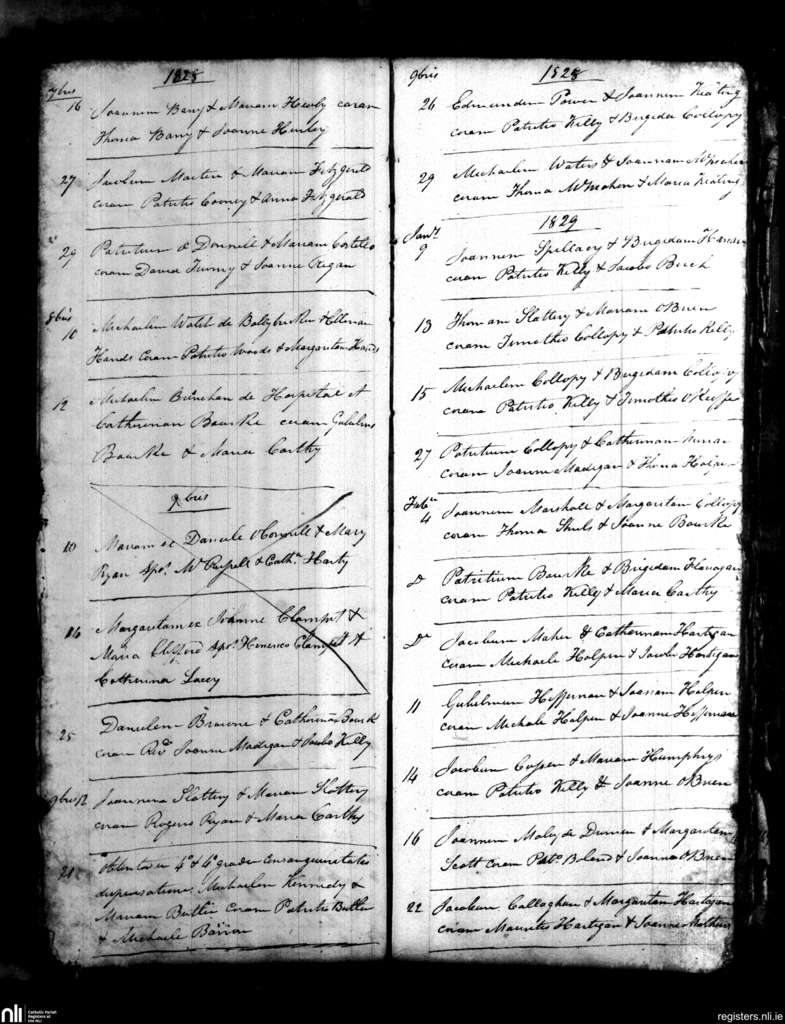 1828
7bris
16 Joannem Barry & Mariam Hurley coram
Thoma Barry & Joanne Hurley
27 Jacobum Martin & Mariam Fitzgerald
coram Patritio Cooney & Anna Fitzgerald
29 Patritium O Donnell & Mariam Costello
coram David & Joanne Regan
8bris
10 Michaelem Walsh de & Ellenam
Hands Coram Patritio Woods & Margaritam Hands
12 Michaelem de Hospital et
Catherinam Bourke coram
Bourke & Maria Carthy
9bris
10 Mariam ex Daniele O Connell & Mary
Ryan Spos. & Cath. Harty
16 Margaritam ex Johanne &
Maria Clifford Spos. Henerico &
Catherina Lacey
25 Danielem Browne & Catherinam Bourk
coram Revd. Joanne Madigan & Jacobo Kelly
9bris 12 Joannem Slattery & Mariam Slattery
coram Rogero Ryan & Maria Carthy
21 4o & 4o gradu Consanguinitatis
dispensatione, Michaelem Kennedy &
Mariam Butler Coram Patritio Butler
& Michaele
9bris
1828
26 Edmundum Power & Joannem Keating
coram Patritio Kelly & Brigida Collopy
29 Michaelem Waters & Joannam
coram Thoma McMahon & Maria Keating
1829
Jany.
9 Joannem Spillacy & Brigidam
coram Patritio Kelly & Jacobo
13 Thomam Slattery & Mariam OBrien
coram Timothio Collopy & Patritio Kelly
15 Michaelem Collopy & Brigidam Collopy
coram Patritio Kelly & Timothio O'Keeffe
27 Patritium Collopy & Catherinam
coram Joanne Madigan & Thoma
4 Joannem Marshall & Margaritam Collopy
coram Thoma & Joanne Bourke
Do Patritium Bourke & Brigidam Flanagan
coram Patritio Kelly & Maria Carthy
Do Jacobum Maher & Catherinam Hartigan
coram Michaele Halpin & Jacobo Hartigan
11 Gulielmum Heffernan & Joanam Halpin
coram Michale Halpin & Joanne Heffernan
14 Jacobum & Mariam Humphrys
coram Patritio Kelly & Joanne OBrien
16 Joannem & Margaritam
Scott coram Patto. Boland & Joanna OBrien
22 Jacobum Callaghan & Margaritam Hartigan
coram Mauritio Hartigan & Joanne
nli
Catholic Parish
Registers at
the NLI
registers.nli.ie